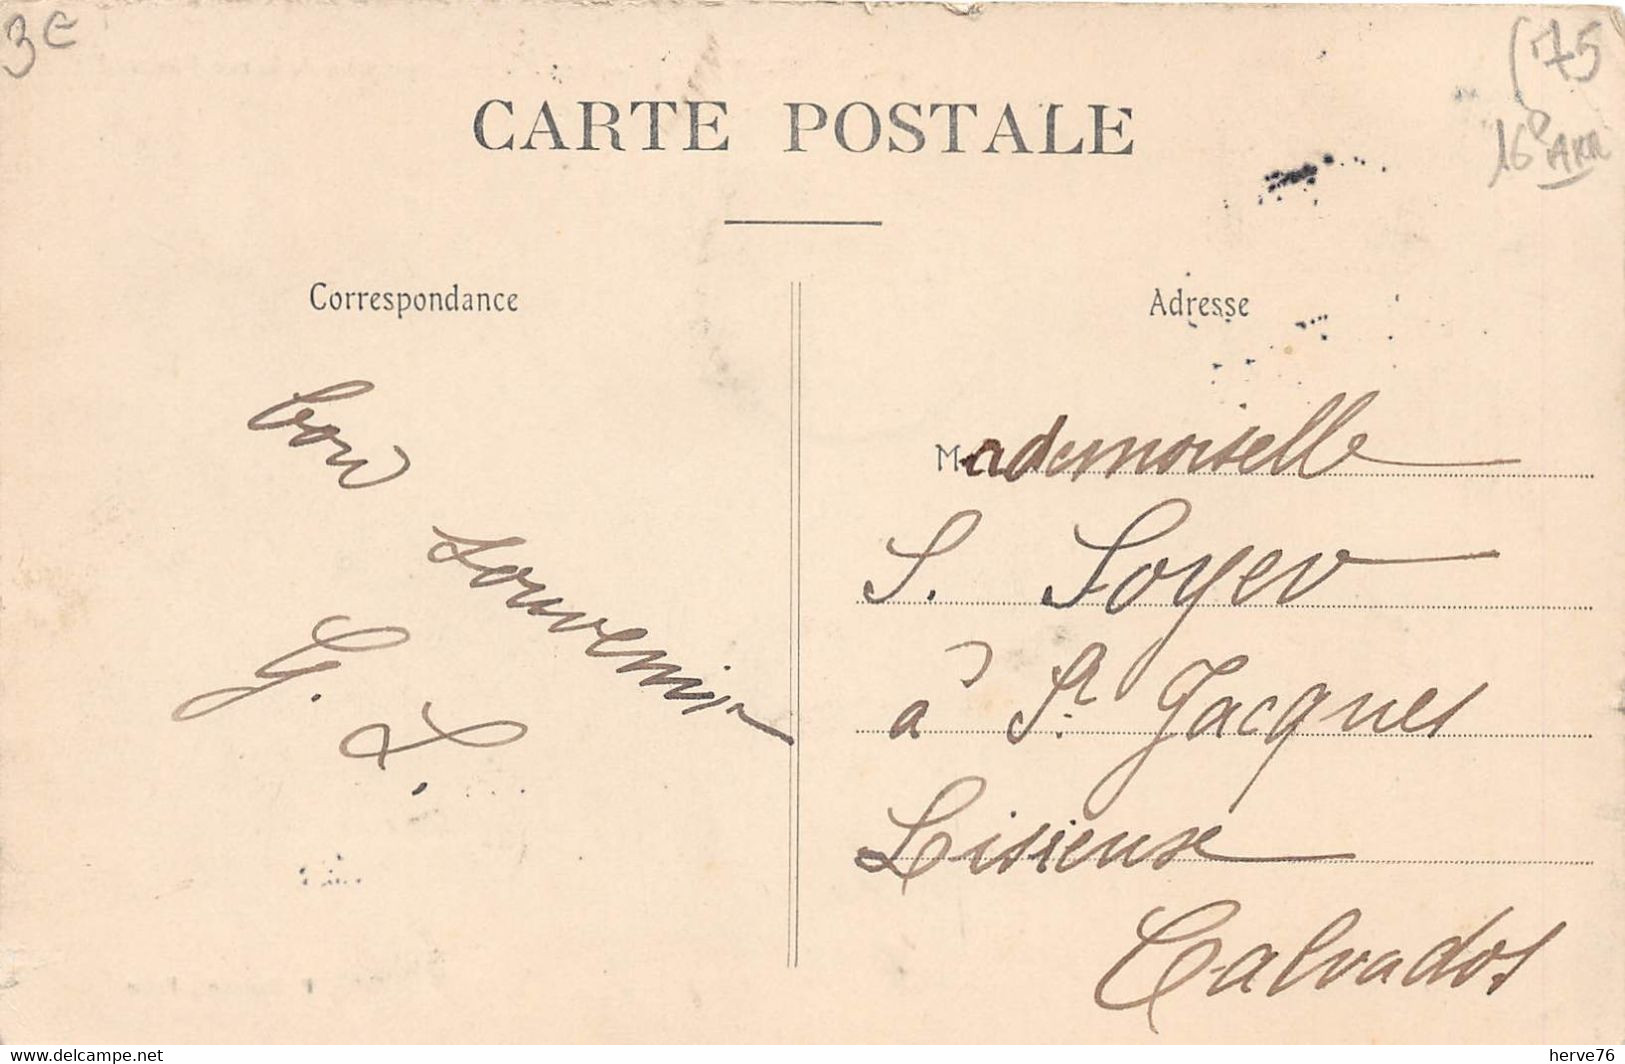 3€
(75
16e ARR
CARTE POSTALE
Correspondance
bon
souvenir
G. L.
Adresse
Mademoiselle
S. Soyer
à St. Jacques
Lisieux
Calvados
www.delcampe.net
herve76